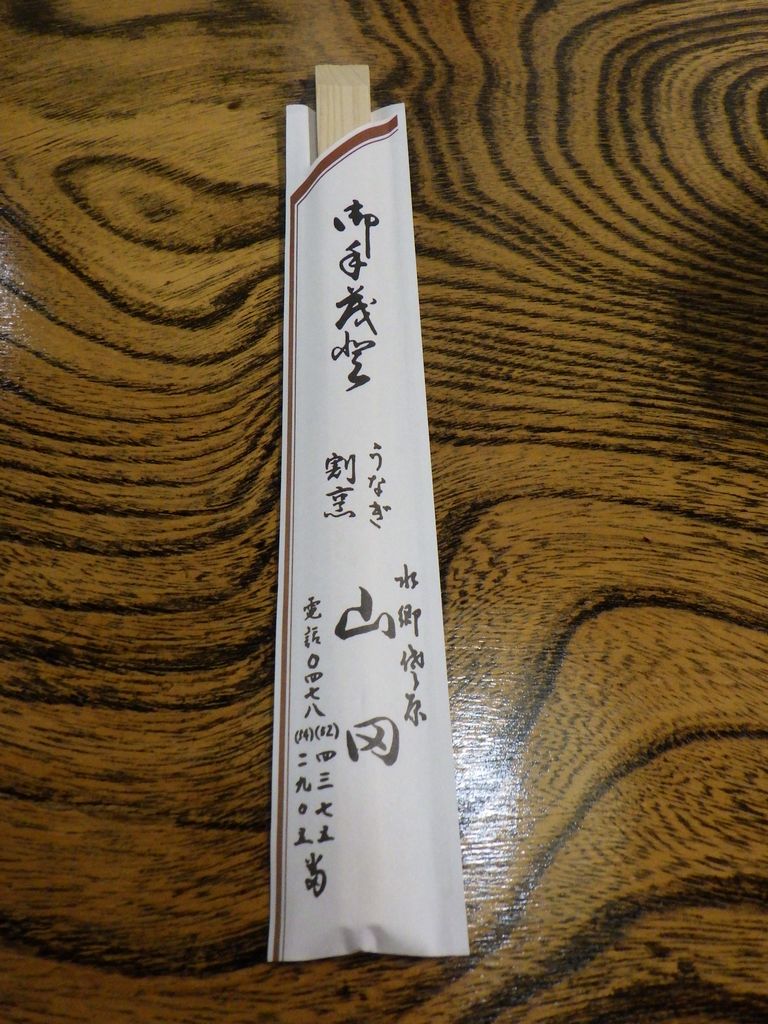 御手茂登
うなぎ
割烹
水郷佐原
山田
電話〇四七八
(52)四三七五
(54)二九〇五番